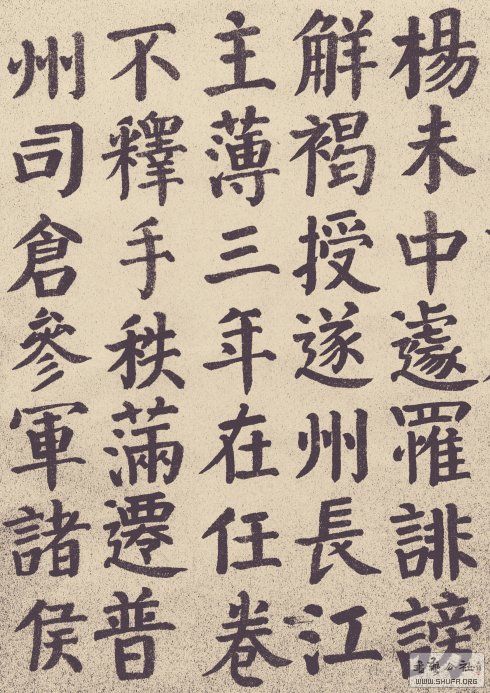 楊未中遽罹誹謗
解褐授遂州長江
主薄三年在任卷
不釋手秩滿遷普
州司倉參軍諸侯
WWW.SHUFA.ORG